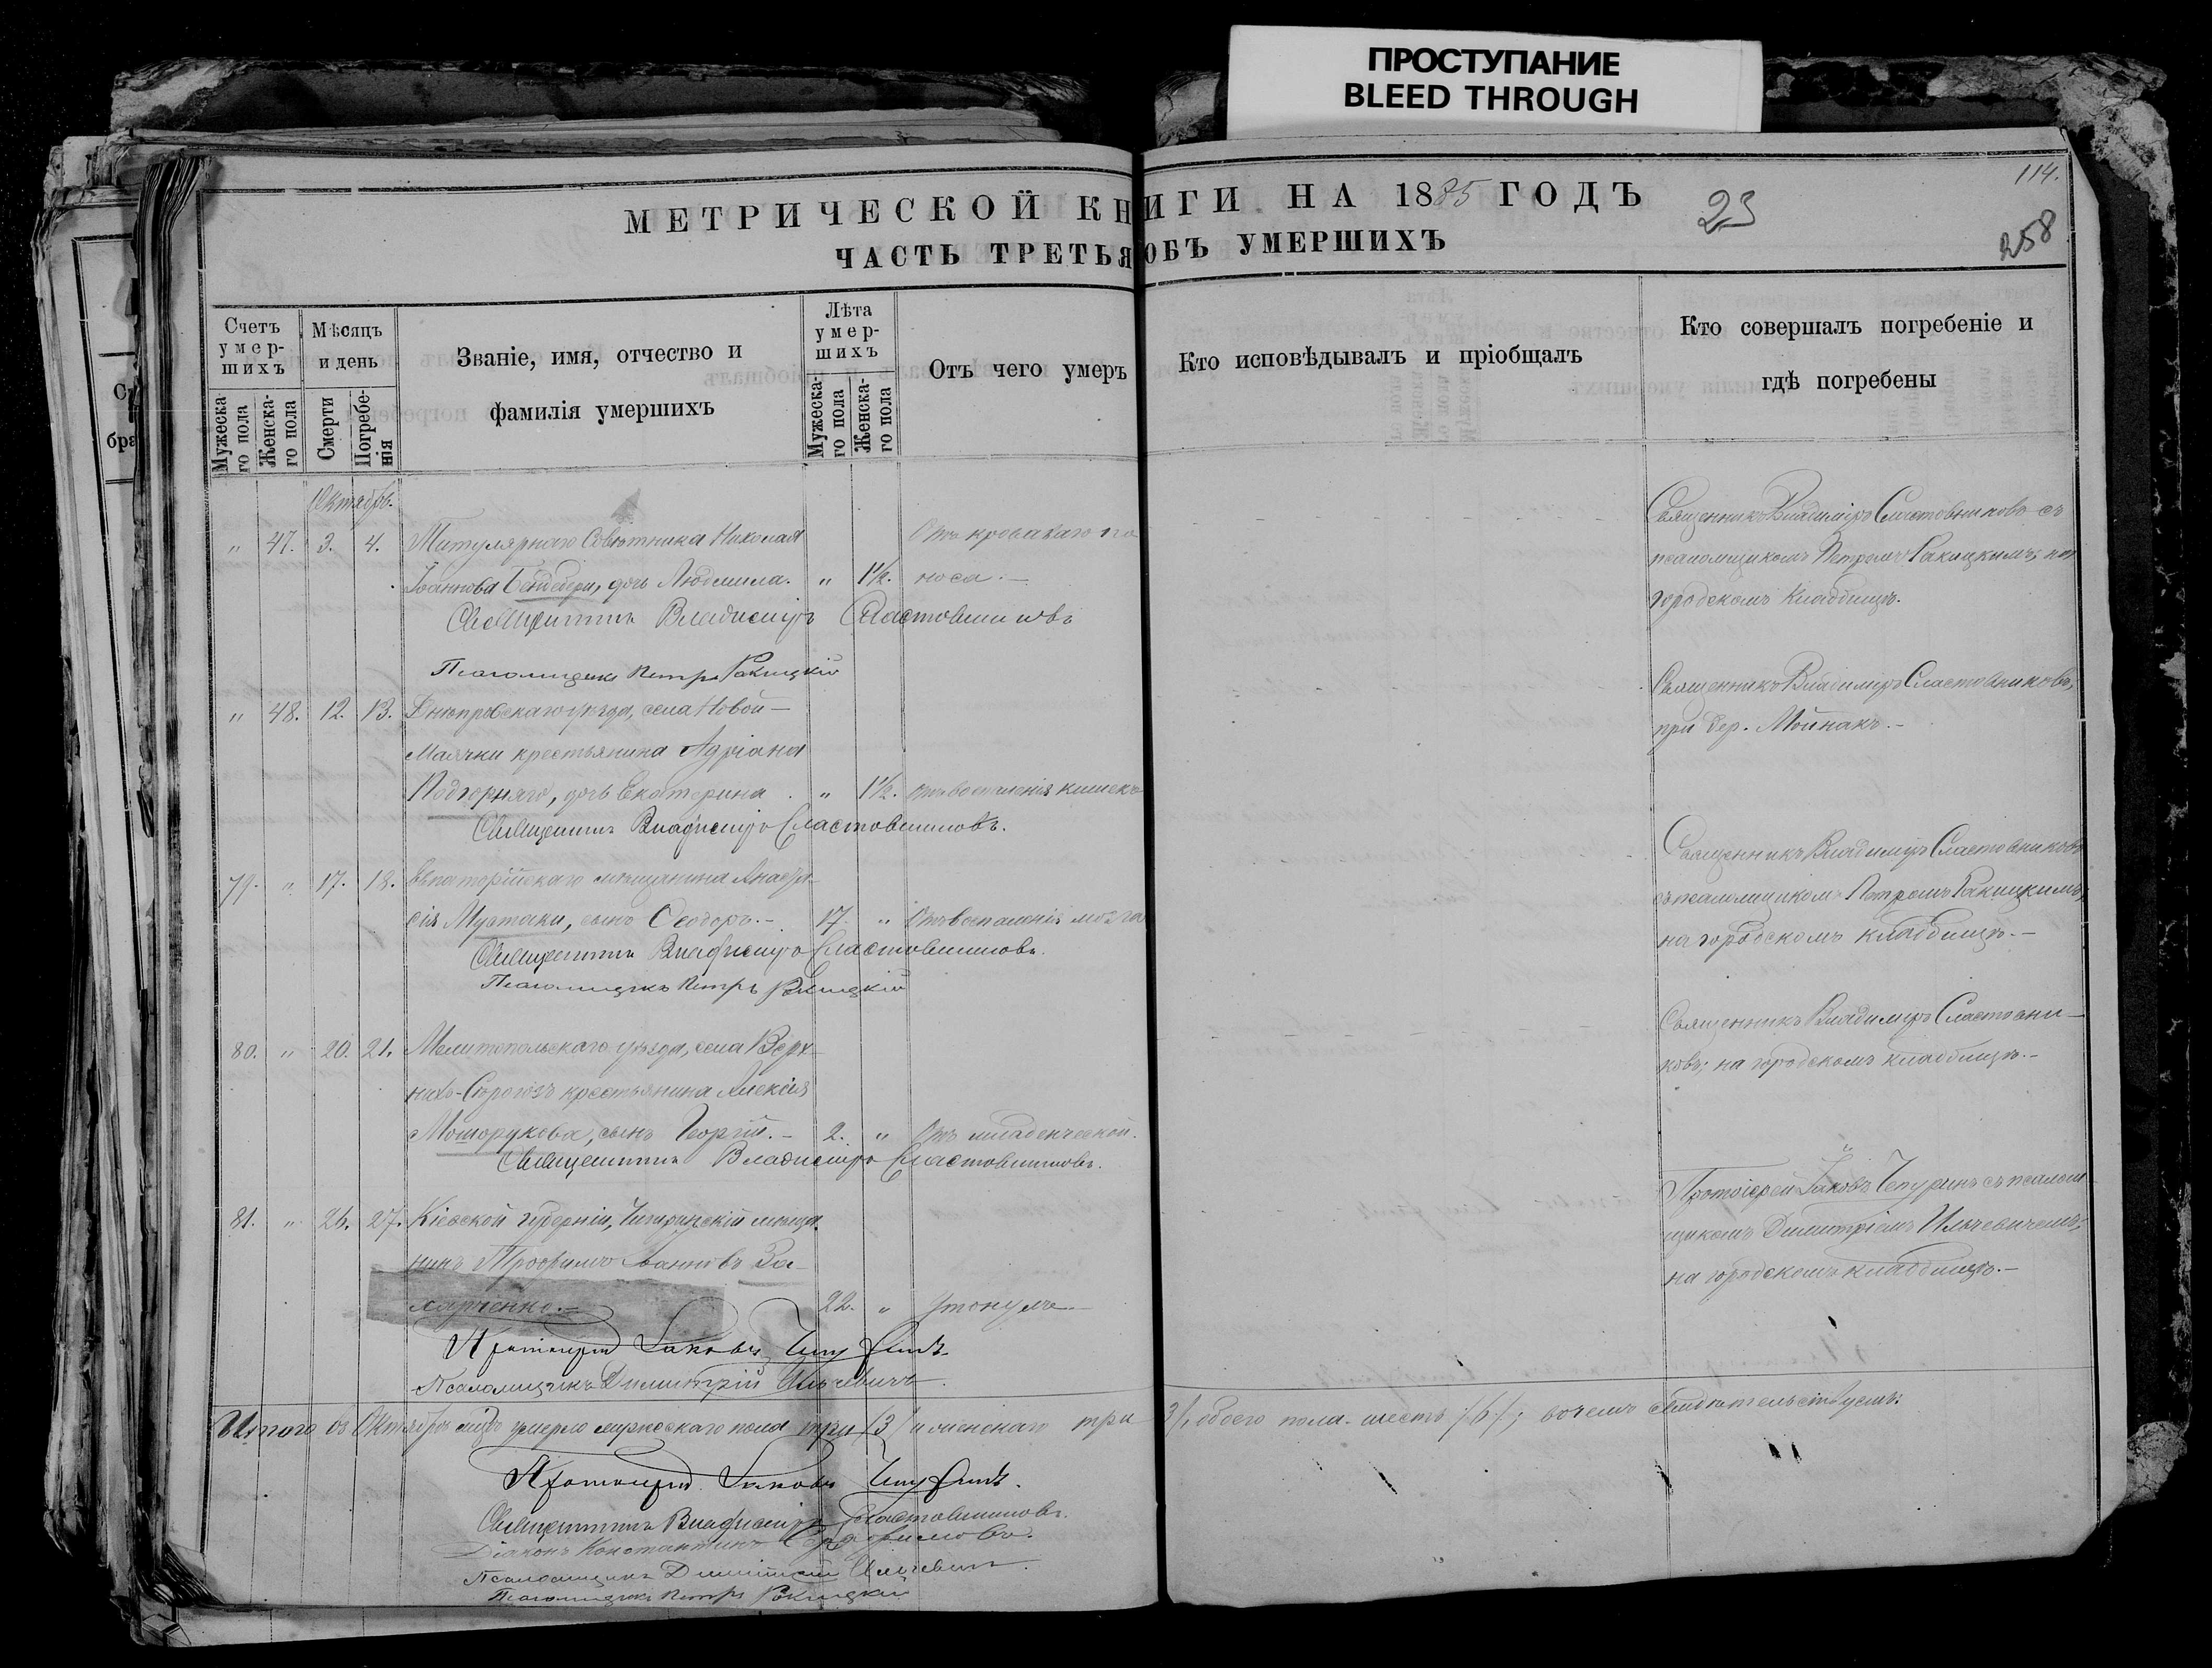 ПРОСТУПАНИЕ
BLEED THROUGH
114.
МЕТРИЧЕСКОЙ КНИГИ НА 1885 ГОДЪ
23
258
ЧАСТЬ ТРЕТЬЯ ОБЪ УМЕРШИХЪ
Счетъ умер-шихъ
Мѣсяцъ и день
Званіе, имя, отчество и фамилія умершихъ
Лѣта умер-шихъ
Отъ чего умеръ
Кто исповѣдывалъ и пріобщалъ
Кто совершалъ погребеніе и гдѣ погребены
Мужеска-го пола
Женска-го пола
Смерти
Погребе-нія
Мужеска-го пола
Женска-го пола
Октябрь.
" 47. 3. 4. Титулярнаго Совѣтника Николая Отъ кроваваго по
Іоаннова Бендебери, дочь Людмила. " 1½. носа.
Священникъ Владиміръ Сластовниковъ
Псаломщикъ Петръ Ракицкій
Священникъ Владиміръ Сластовниковъ съ
псаломщикомъ Петромъ Ракицкимъ; на
городскомъ кладбищѣ.
" 48. 12. 13. Днѣпровскаго уѣзда, села Новой-
Маячки крестьянина Адріана
Подгорняго, дочь Екатерина. " 1½. Отъ воспаленія кишекъ
Священникъ Владиміръ Сластовниковъ.
Священникъ Владиміръ Сластовниковъ,
при дер. Мойнакъ.-
79. " 17. 18. Евпаторійскаго мѣщанина Анаста-
сія Мутаки, сынъ Ѳеодоръ.- 17. " Отъ воспаленія мозга
Священникъ Владиміръ Сластовниковъ.
Псаломщикъ Петръ Ракицкій
Священникъ Владиміръ Сластовниковъ
съ псаломщикомъ Петромъ Ракицкимъ;
на городскомъ кладбищѣ.-
80. " 20. 21. Мелитопольскаго уѣзда, села Верх-
нихъ-Сѣрогозъ крестьянина Алексія
сынъ Георгій.- 2. " Отъ младенческой.
Священникъ Владиміръ Сластовниковъ.
Священникъ Владиміръ Сластовни-
ковъ; на городскомъ кладбищѣ.-
81. " 26. 27. Кіевской губерніи, Чигиринскій мѣща-
нинъ Трофимъ Іоанновъ За-
харченко.- 22. " Утонулъ
Протоіерей Іаковъ Чепуринъ
Псаломщикъ Димитрій Ильчевичъ.
Протоіерей Іаковъ Чепуринъ съ псалом
щикомъ Димитріемъ Ильчевичемъ;
на городскомъ кладбищѣ.-
Итого въ Октябрѣ м-цѣ умерло мужескаго пола три /3/ и женскаго три 3/, обоего пола шесть /6/; въ чемъ свидѣтельствуемъ:
Протоіерей Іаковъ Чепуринъ.
Священникъ Владиміръ Сластовниковъ.
Діаконъ Константинъ
Псаломщикъ Димитрій Ильчевичъ.
Псаломщикъ Петръ Ракицкій